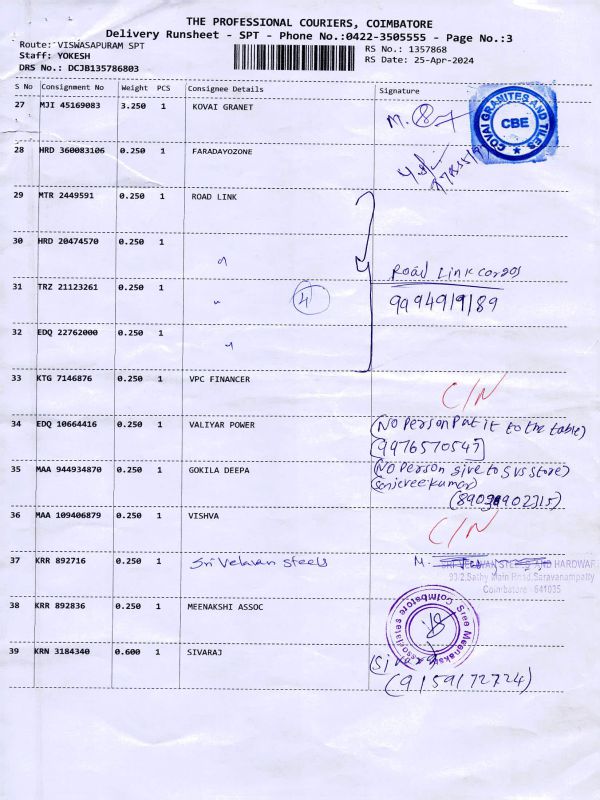 THE PROFESSIONAL COURIERS, COIMBATORE
Delivery Runsheet - SPT - Phone No.:0422-3505555 - Page No.:3
Route: VISWASAPURAM SPT
Staff: YOKESH
DRS No.: DCJB135786803
RS No.: 1357868
RS Date: 25-Apr-2024
S No Consignment No Weight PCS Consignee Details Signature
27 MJI 45169083 3.250 1 KOVAI GRANET
M.
COVAI GRANITES AND TILES
CBE
28 HRD 360083106 0.250 1 FARADAYOZONE
29 MTR 2449591 0.250 1 ROAD LINK
30 HRD 20474570 0.250 1 "
Road Link cargos
31 TRZ 21123261 0.250 1 " 4
9994919189
32 EDQ 22762000 0.250 1 "
33 KTG 7146876 0.250 1 VPC FINANCER C/N
34 EDQ 10664416 0.250 1 VALIYAR POWER (No Person Put it to the table)
9976570547
35 MAA 944934870 0.250 1 GOKILA DEEPA (No Person give to svs store)
36 MAA 109406879 0.250 1 VISHVA C/N
37 KRR 892716 0.250 1 Sri Velavan Steels M. SRI VELAVAN STEELS AND HARDWAR
93/2,Sathy Main Road,Saravanampatty
Coimbatore - 641035
38 KRR 892836 0.250 1 MEENAKSHI ASSOC
Sree Meenakshi Associates Coimbatore
39 KRN 3184340 0.600 1 SIVARAJ
(9159172724)